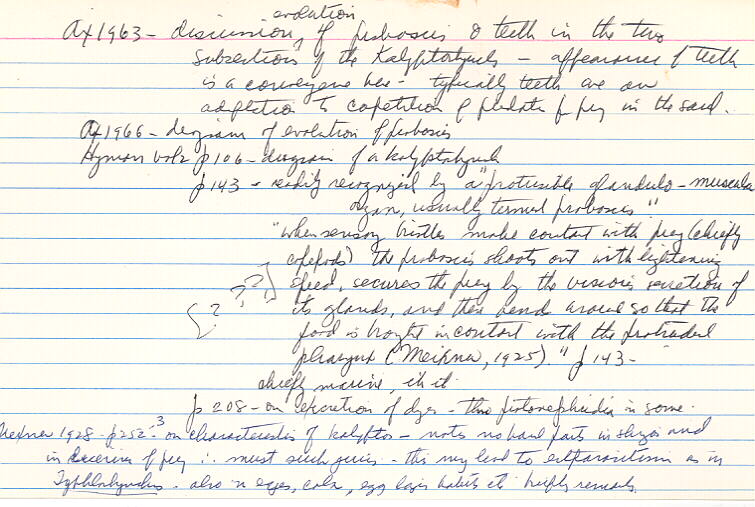 evolution
Ax 1963 - discussion, of proboscis & teeth in the two
subsections of the Kalyptorhynchs - appearance of teeth
is a convergence here - typically teeth are an
adaptation to competition of predators for prey in the sand.
Ax 1966 - diagram of evolution of proboscis
Hyman vol 2 p 106 - diagram of a kalyptorhynch
p 143 - readily recognized by a "protrusible glandulo-muscular
organ, usually termed proboscis"
"when sensory bristles make contact with prey (chiefly
copepods) the proboscis shoots out with lightening
speed, secures the prey by the viscious secretion of
? ? ? its glands, and then bends around so that the
food is brought in contact with the protruded
pharynx (Meixner, 1925)." p 143 -
chiefly marine, in it
p 208 - on excretion of dyes - thru protonephridia in some.
Meixner 1928 - p 252-3 on characteristics of kalyptos - notes no hard parts in and
in of prey ∴ must such juices - this may lead to ectoparasitism as in
Typhlorhynchus - also n eyes, color, egg laying habits etc briefly remarks.